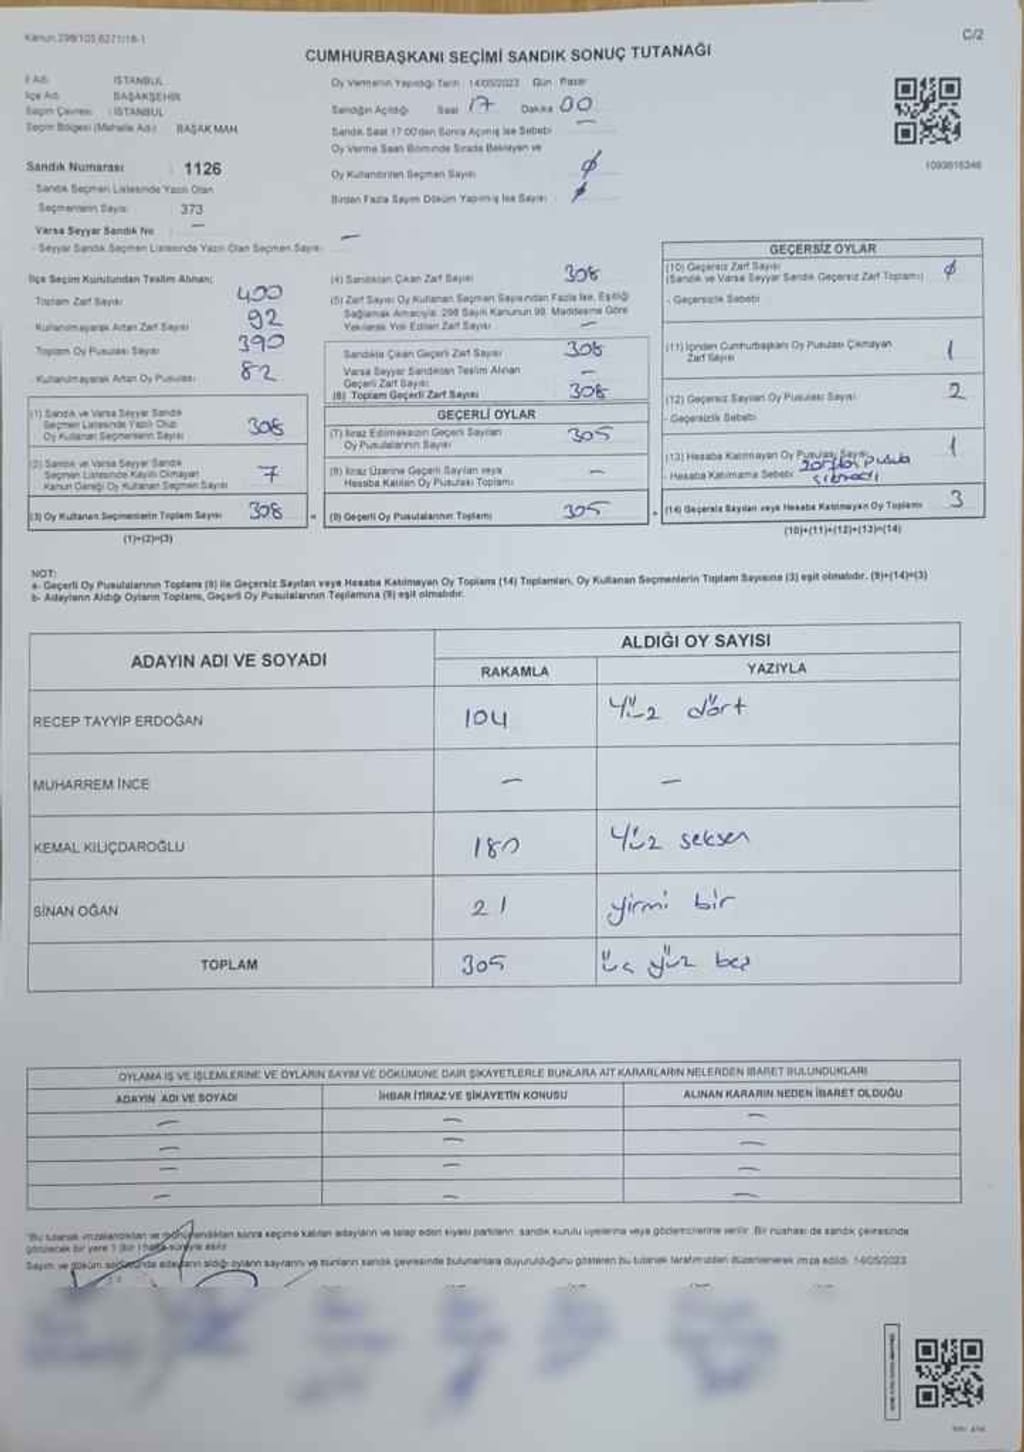 Kanun 298/105 6271/18-1
C/2
CUMHURBAŞKANI SEÇİMİ SANDIK SONUÇ TUTANAĞI
İl Adı: İSTANBUL
İlçe Adı: BAŞAKŞEHİR
Seçim Çevresi: İSTANBUL
Seçim Bölgesi (Mahalle Adı): BAŞAK MAH.
Sandık Numarası : 1126
Sandık Seçmen Listesinde Yazılı Olan
Seçmenlerin Sayısı : 373
Varsa Seyyar Sandık No : —
- Seyyar Sandık Seçmen Listesinde Yazılı Olan Seçmen Sayısı: —
Oy Vermenin Yapıldığı Tarih : 14/05/2023 Gün : Pazar
Sandığın Açıldığı Saat 17 Dakika 00
Sandık Saat 17:00'den Sonra Açılmış İse Sebebi —
Oy Verme Saati Bitiminde Sırada Bekleyen ve
Oy Kullandırılan Seçmen Sayısı ϕ
Birden Fazla Sayım Döküm Yapılmış İse Sayısı ϕ
1093616346
İlçe Seçim Kurulundan Teslim Alınan;
Toplam Zarf Sayısı 400
Kullanılmayarak Artan Zarf Sayısı 92
Toplam Oy Pusulası Sayısı 390
Kullanılmayarak Artan Oy Pusulası 82
(1) Sandık ve Varsa Seyyar Sandık
Seçmen Listesinde Yazılı Olup
Oy Kullanan Seçmenlerin Sayısı 308
(2) Sandık ve Varsa Seyyar Sandık
Seçmen Listesinde Kayıtlı Olmayan
Kanun Gereği Oy Kullanan Seçmen Sayısı 7
(3) Oy Kullanan Seçmenlerin Toplam Sayısı 308
(1)+(2)=(3)
(4) Sandıktan Çıkan Zarf Sayısı 308
(5) Zarf Sayısı Oy Kullanan Seçmen Sayısından Fazla İse, Eşitliği
Sağlamak Amacıyla, 298 Sayılı Kanunun 98. Maddesine Göre
Yakılarak Yok Edilen Zarf Sayısı —
Sandıkta Çıkan Geçerli Zarf Sayısı 308
Varsa Seyyar Sandıktan Teslim Alınan
Geçerli Zarf Sayısı —
(6) Toplam Geçerli Zarf Sayısı 308
GEÇERLİ OYLAR
(7) İtiraz Edilmeksizin Geçerli Sayılan
Oy Pusulalarının Sayısı 305
(8) İtiraz Üzerine Geçerli Sayılan veya
Hesaba Katılan Oy Pusulası Toplamı —
(9) Geçerli Oy Pusulalarının Toplamı 305
GEÇERSİZ OYLAR
(10) Geçersiz Zarf Sayısı
(Sandık ve Varsa Seyyar Sandık Geçersiz Zarf Toplamı) ϕ
- Geçersizlik Sebebi
(11) İçinden Cumhurbaşkanı Oy Pusulası Çıkmayan
Zarf Sayısı 1
(12) Geçersiz Sayılan Oy Pusulası Sayısı 2
- Geçersizlik Sebebi
(13) Hesaba Katılmayan Oy Pusulası Sayısı 1
- Hesaba Katılmama Sebebi zarftan pusula
çıkmadı
(14) Geçersiz Sayılan veya Hesaba Katılmayan Oy Toplamı 3
(10)+(11)+(12)+(13)=(14)
NOT:
a- Geçerli Oy Pusulalarının Toplamı (9) ile Geçersiz Sayılan veya Hesaba Katılmayan Oy Toplamı (14) Toplamları, Oy Kullanan Seçmenlerin Toplam Sayısına (3) eşit olmalıdır. (9)+(14)=(3)
b- Adayların Aldığı Oyların Toplamı, Geçerli Oy Pusulalarının Toplamına (9) eşit olmalıdır.
ADAYIN ADI VE SOYADI
ALDIĞI OY SAYISI
RAKAMLA YAZIYLA
RECEP TAYYİP ERDOĞAN 104 Yüz dört
MUHARREM İNCE — —
KEMAL KILIÇDAROĞLU 180 Yüz seksen
SİNAN OĞAN 21 yirmi bir
TOPLAM 305 üç yüz beş
OYLAMA İŞ VE İŞLEMLERİNE VE OYLARIN SAYIM VE DÖKÜMÜNE DAİR ŞİKAYETLERLE BUNLARA AİT KARARLARIN NELERDEN İBARET BULUNDUKLARI
ADAYIN ADI VE SOYADI İHBAR İTİRAZ VE ŞİKAYETİN KONUSU ALINAN KARARIN NEDEN İBARET OLDUĞU
— — —
— — —
— — —
— — —
Bu tutanak imzalandıktan ve mühürlendikten sonra seçime katılan adayların ve talep eden siyasi partilerin, sandık kurulu üyelerine veya gözlemcilerine verilir. Bir nüshası da sandık çevresinde
görülecek bir yere 1 (bir) hafta süreyle asılır
Sayım ve döküm sonucunda adayların aldığı oyların sayılarını ve bunların sandık çevresinde bulunanlara duyurulduğunu gösteren bu tutanak tarafımızdan düzenlenerek imza edildi. 14/05/2023